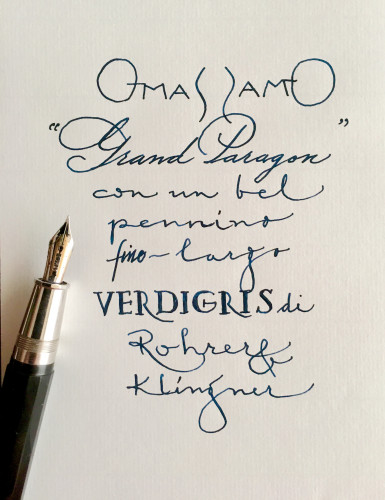 OMAS SAMO
"Grand Paragon"
con un bel
pennino
fino-largo
VERDIGRIS di
Rohrer &
Klingner